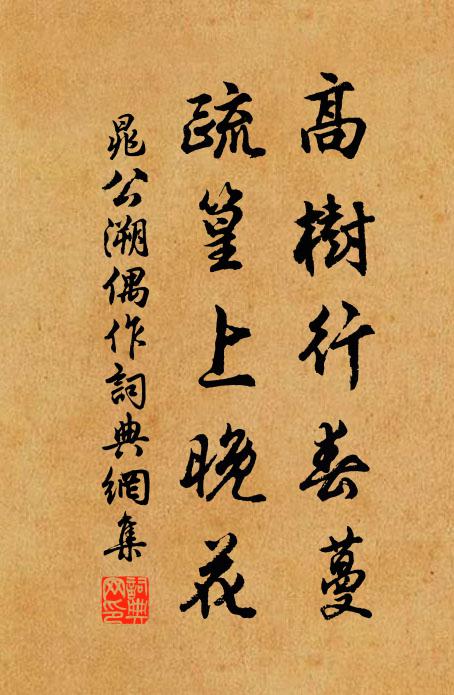 高樹行春蔓
疏篁上晚花
晁公溯偶作詞典網集
詞典網印